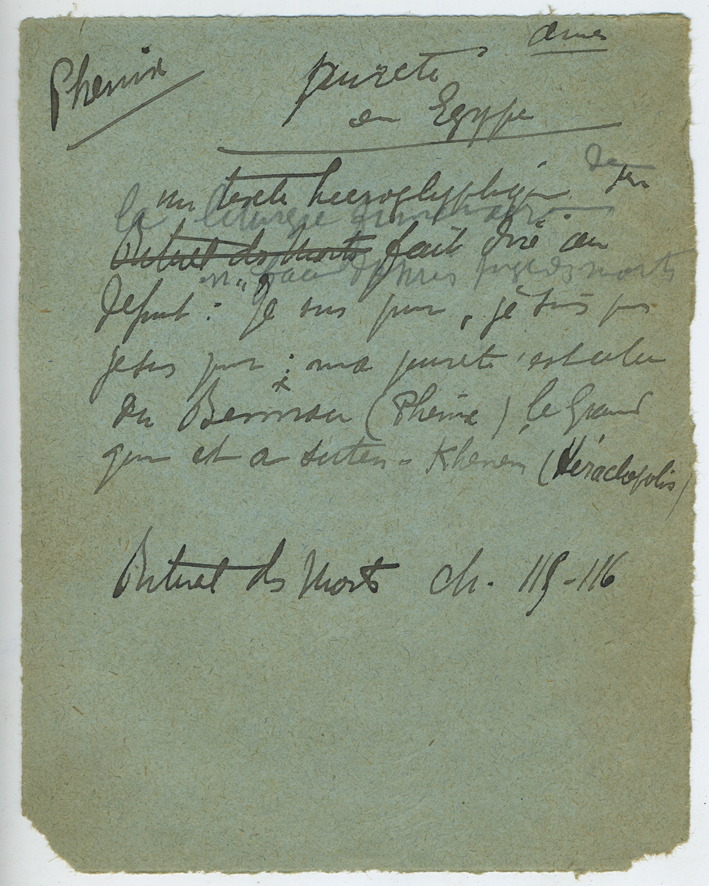 âmes
Phénix
pureté
en Egypte
un texte hiéroglyphique
de
la liturgie funéraire
Rituel des Morts fait dire au
des morts
défunt : "je suis pur, je suis pur
je suis pur : ma pureté est celle
du Bennou (Phénix) le Grand
qui est a Suten-Khenen (Héracléopolis)
Rituel des Morts ch. 115-116